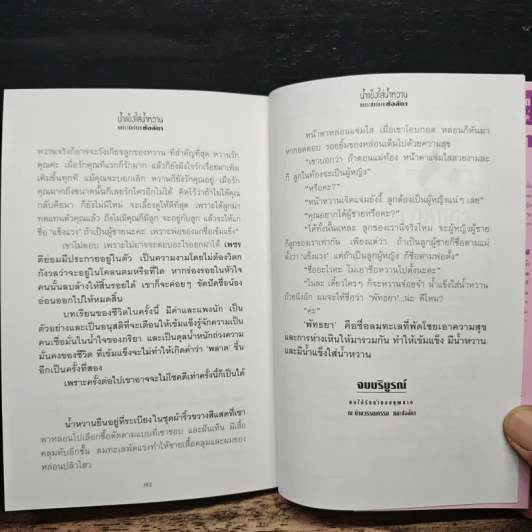 น้ำแข็งใสน้ำหวาน
หวานจริงก็อาจจะรังเกียจลูกของหวาน ที่สำคัญที่สุด หวานรัก
คุณค่ะ เมื่อรักคุณที่แรกก็รักมาก แล้วก็ยังฝังใจรักเรื่อยมาเพิ่ม
เติมขึ้นทุกที แม้คุณจะบอกเลิก หวานก็ยังรักคุณอยู่ เมื่อรัก
คุณมากถึงขนาดนั้นก็เลยรักใครอีกไม่ได้ คิดไว้ว่าถ้าไม่ได้คุณ
กลับคืนมา ก็ยังไม่มีใหม่ จะเลี้ยงดูให้ดีที่สุด เพราะได้ลูกมา
ทดแทนคุณแล้ว ถึงไม่มีคุณก็มีลูก จะอยู่กับลูก แล้วจะให้แก
ชื่อ 'แข็งแรง' ถ้าเป็นผู้ชายนะคะ เพราะพ่อของแกชื่อเข้มแข็ง"
เขาไม่ตอบ เพราะไม่อาจจะตอบอะไรออกมาได้ เพชร
ดีย่อมมีประกายอยู่ในตัว เป็นความงามโดยไม่ต้องวิตก
กังวลว่าจะอยู่ในโคลนตมหรือที่ใด หากร่องรอยในหัวใจ
คนนั้นลบล้างให้สิ้นรอยได้ เขาก็จะค่อยๆ ขัดปัดชื่อน้อง
อ่อนออกไปให้หมดสิ้น
บทเรียนของชีวิตในครั้งนี้ มีค่าและแพงนัก เป็น
ตัวอย่างและเป็นอนุสติที่จะเตือนให้เข้มแข็งรู้จักความเป็น
คนเชื่อมั่นในน้ำใจของภริยา และเป็นดุลน้ำหนักถ่วงความ
มั่นคงของชีวิต ที่เข้มแข็งจะไม่ทำให้เกิดคำว่า 'พลาด' ขึ้น
อีกเป็นครั้งที่สอง
เพราะครั้งต่อไปเขาอาจจะไม่โชคดีเท่าครั้งนี้ก็เป็นได้
น้ำหวานยืนอยู่ที่ระเบียงในชุดผ้าริ้วขวางสีแสดที่เขา
พาหล่อนไปเลือกซื้อตัดตามแบบที่เขาชอบ และมันเห็น มีเสื้อ
คลุมทับอีกชั้น ลมทะเลพัดแรงทำให้ชายเสื้อคลุมและผมของ
หล่อนปลิวไสว
น้ำแข็งใสน้ำหวาน
หน้าตาหล่อนแจ่มใส เมื่อเขาโอบกอด หล่อนก็หันมา
หากอดตอบ รอยยิ้มของหล่อนเต็มไปด้วยความสุข
"เขาบอกว่า ถ้าตอนแม่ท้อง หน้าตาแจ่มใสสวยงามละ
ก็ ลูกในท้องจะเป็นผู้หญิง"
"หรือคะ?"
"หน้าหวานเจิดแจ่มยังงี้ ลูกต้องเป็นผู้หญิงแน่ๆ เลย"
"คุณอยากได้ผู้ชายหรือคะ?"
"ได้ทั้งนั้นแหละ ลูกของเรานี่จริงไหม จะผู้หญิงผู้ชาย
ก็ลูกของเราเท่ากัน เพียงแต่ว่า ถ้าเป็นลูกผู้ชายก็ชื่อตามแม่
ตั้งว่า 'แข็งแรง' แต่ถ้าเป็นลูกผู้หญิง ก็ชื่อตามพ่อตั้ง"
"ชื่ออะไรคะ ไม่เอาชื่อหวานไปตั้งนะคะ"
"ไม่ละ เดี๋ยวใครๆ ก็จะหวานจ๋อยจ๋ำ น้ำแข็งใส่น้ำหวาน
ถ้วยนึงอีก ผมจะให้ชื่อว่า 'พัทธยา'..น่ะ ดีไหม?"
"ค่ะ"
'พัทธยา' คือชื่อลมทะเลที่พัดโชยเอาความสุข
และการห่างเหินให้มารวมกัน ทำให้เข้มแข็ง มีน้ำหวาน
และมีน้ำแข็งใส่น้ำหวาน
จบบริบูรณ์